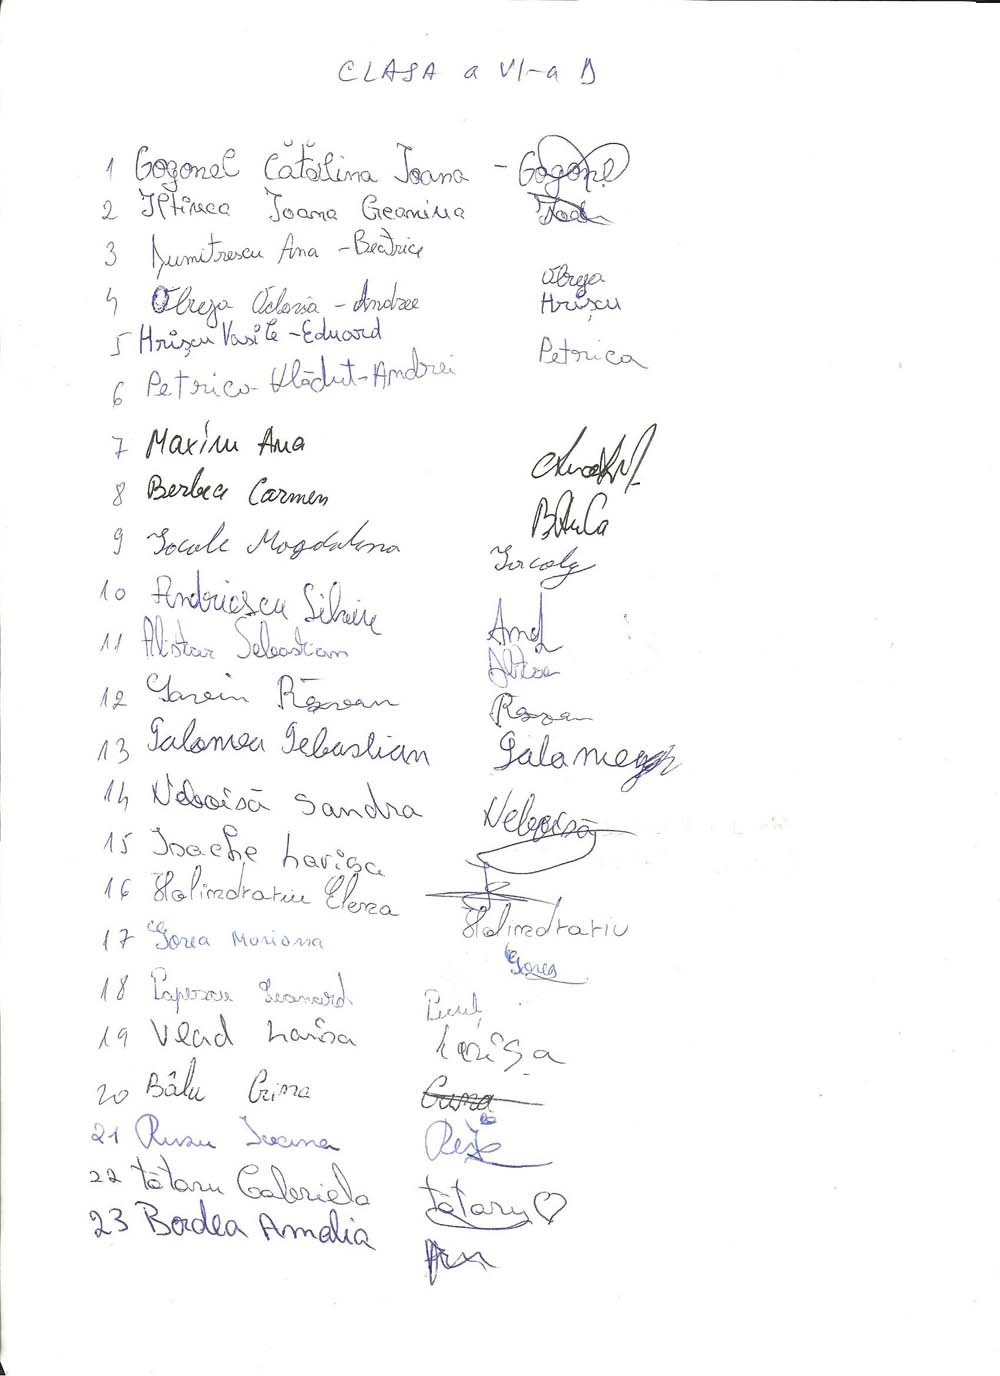 CLASA a VI-a D
1 Gogonel Cătălina Ioana - Gogonel
2 Iftinca Ioana Geanina
3 Dumitrescu Ana-Beatrice
4 Obreja Octavia-Andree Obreja
5 Hrișcu Vasile-Eduard Hrișcu
6 Petrica Vlăduț-Andrei Petrica
7 Maxim Ana
8 Berbec Carmen
9 Iocale Magdalena
10 Andriescu Silviu And
11 Alistar Sebastian
12 Răzvan Razvan
13 Galamea Sebastian Galamea
14 Neboisă Sandra Neboisă
15 Isache Larisa
16 Holindrariu Elena Holindrariu
17 Gorea Mariana Gorea
18 Popescu Leonard
19 Vlad Larisa Larisa
20 Bâlu Crina Crina
21 Rusu Ioana
22 Tătaru Gabriela Tătaru
23 Bordea Amalia Am